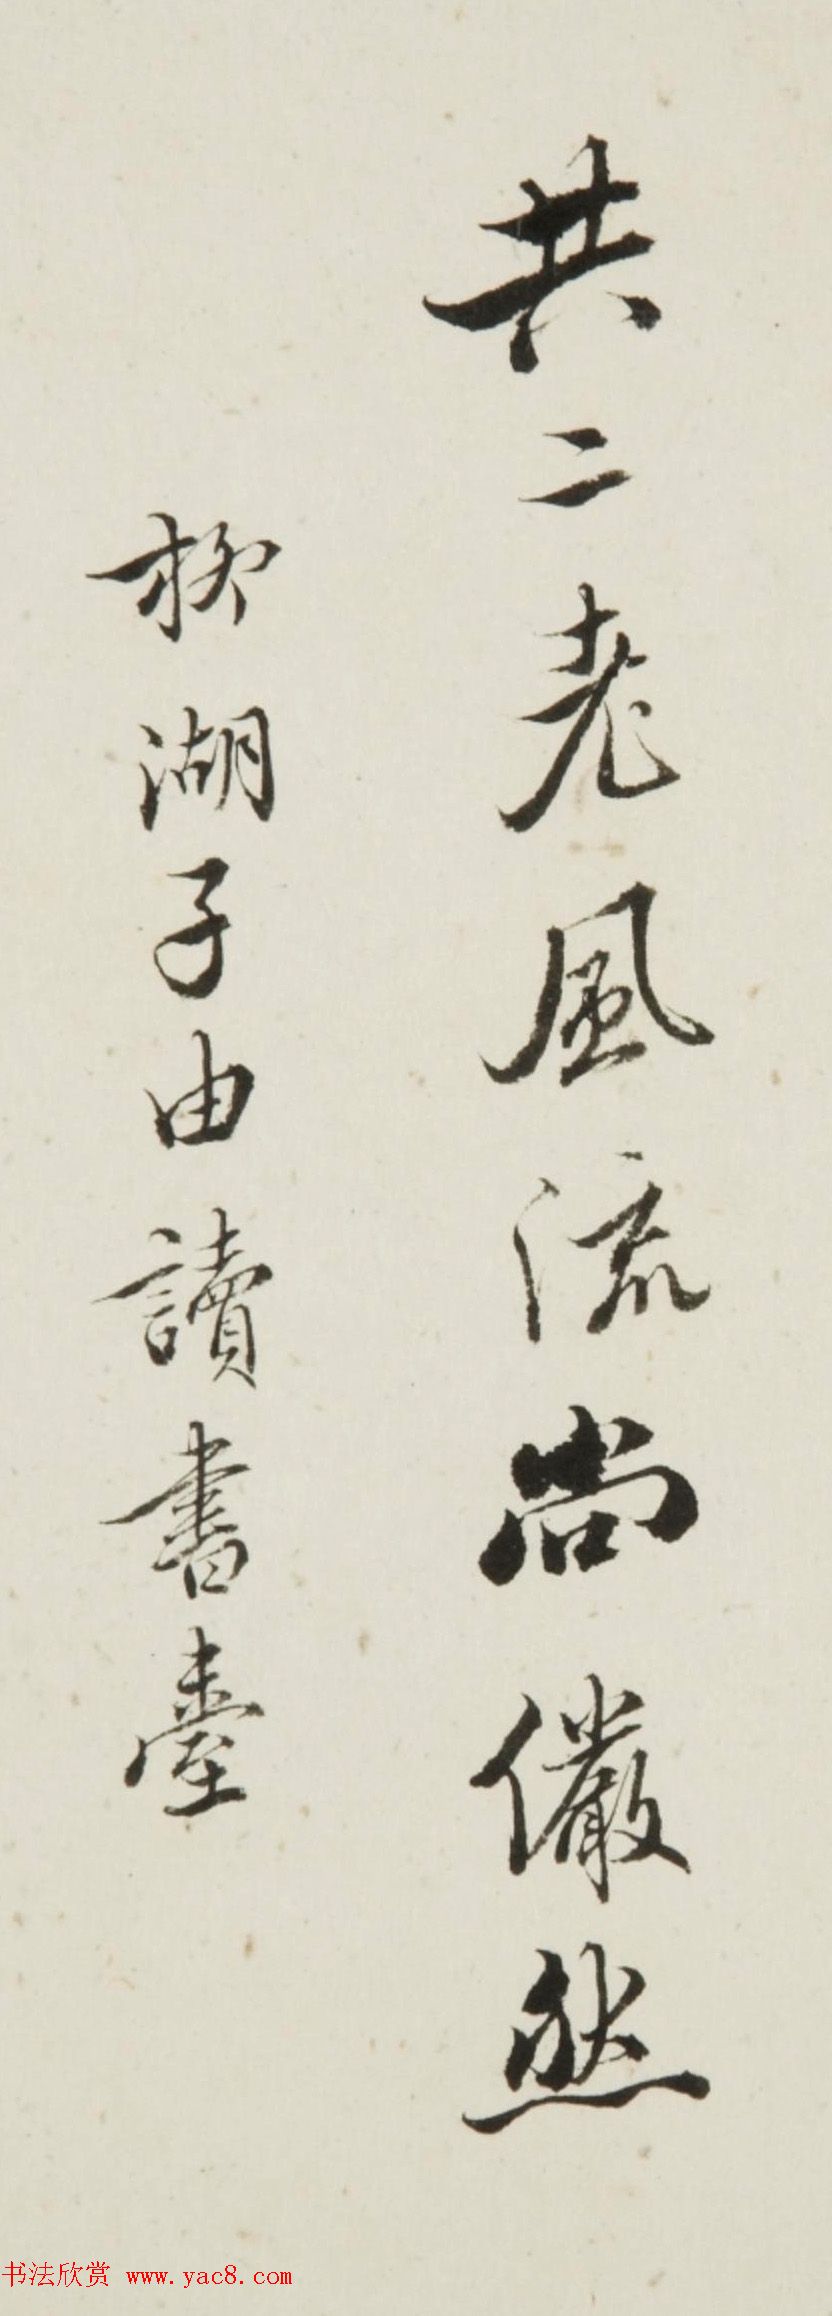 共二老風流尚儼然
柳湖子由讀書臺
书法欣赏 www.yac8.com